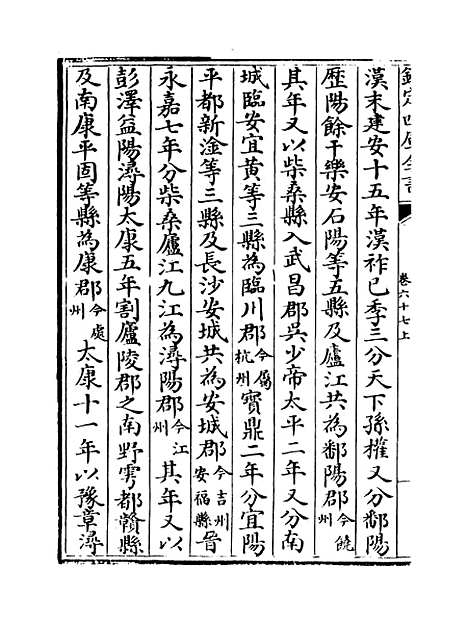 欽定四庫全書
卷六十七上
漢末建安十五年漢祚已季三分天下孫權又分鄱陽
歷陽餘干樂安石陽等五縣及廬江共為鄱陽郡今饒州
其年又以柴桑縣入武昌郡吳少帝太平二年又分南
城臨安宜黃等三縣為臨川郡今屬杭州寳鼎二年分宜陽
平都新淦等三縣及長沙安城共為安城郡今吉州安福縣晉
永嘉七年分柴桑廬江九江為潯陽郡今江州其年又以
彭澤益陽潯陽太康五年割廬陵郡之南野雩都贛縣
及南康平固等縣為康郡今處州太康十一年以豫章潯